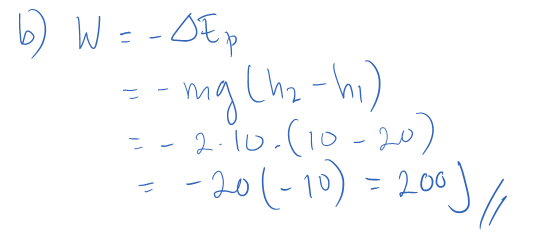 b) W = - ΔEp
= - mg (h₂ - h₁)
= - 2 . 10 . (10 - 20)
= - 20 (-10) = 200 J //